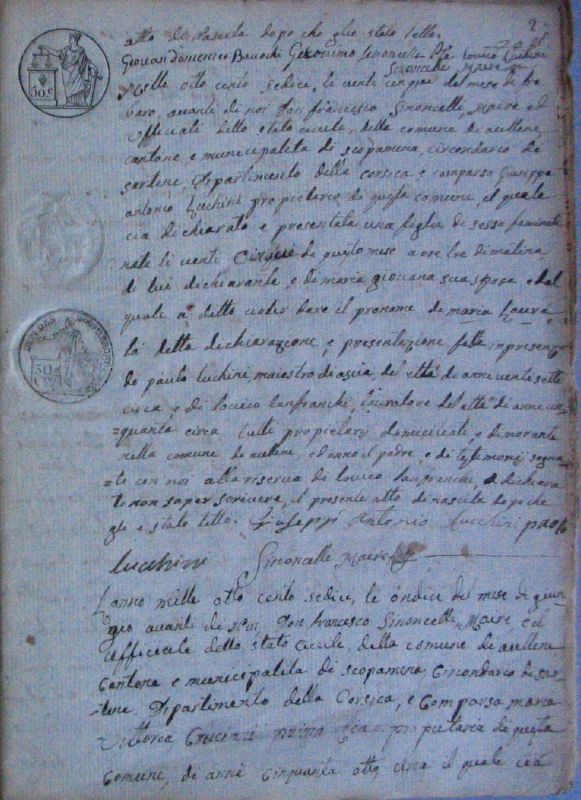 2.
atto di nascita dopo che gli e stato letto.
Giovan domenico Geronimo Simoncelli
Simoncelli Maire
Mille otto cento sedice, li venti cinque del mese di
baro, avanti di noi Don francesco Simoncelli, Maire ed
Ufficiale dello stato civile, della comune di avellene
cantone e municipalita di scopamena, circondario di
sartene, Dipartimento della corsica e comparso Giuseppe
antonio Lucchini proprietario di questa comune, il quale
cia dichiarato e presentata una figlia di sesso feminile
nata li venti Cinque di questo mese a ore tre di matina
di lui dichiarante, e di maria giovana sua sposa e del
quale a detto voler dare il pronome di maria Laura
la detta dichiarazione, e presentazione fatta in presenza
de paulo luchini, maiestro di ascia, del età di anne vente sette
circa e di lanfranchi, lavoratore del età di anne cin
=quanta circa tutti proprietarj domiciliati, e dimorante
nella comune di avellene, ed anno il padre, e di testimonij segna
=to con noi alla reserva di lanfranchi, a dichiara
to non saper scrivere, il presente atto di nascita dopo che
gli e stato letto. Giuseppi Antonio Lucchini paolo
lucchini Simoncelli Maire
L'anno mille otto cento sedice, le ondice del mese di giun
gio avanti di noi Don francesco Simoncelli, Maire ed
ufficiale dello stato civile, della comune di avellene
Cantone e municipalita di scopamena Circondario di sar
=tene, Dipartimento della Corsica, e Comparsa maria
Vittoria proprietaria di questa
Comune, di anne cinquanta otto circa il quale cia
30 C
50